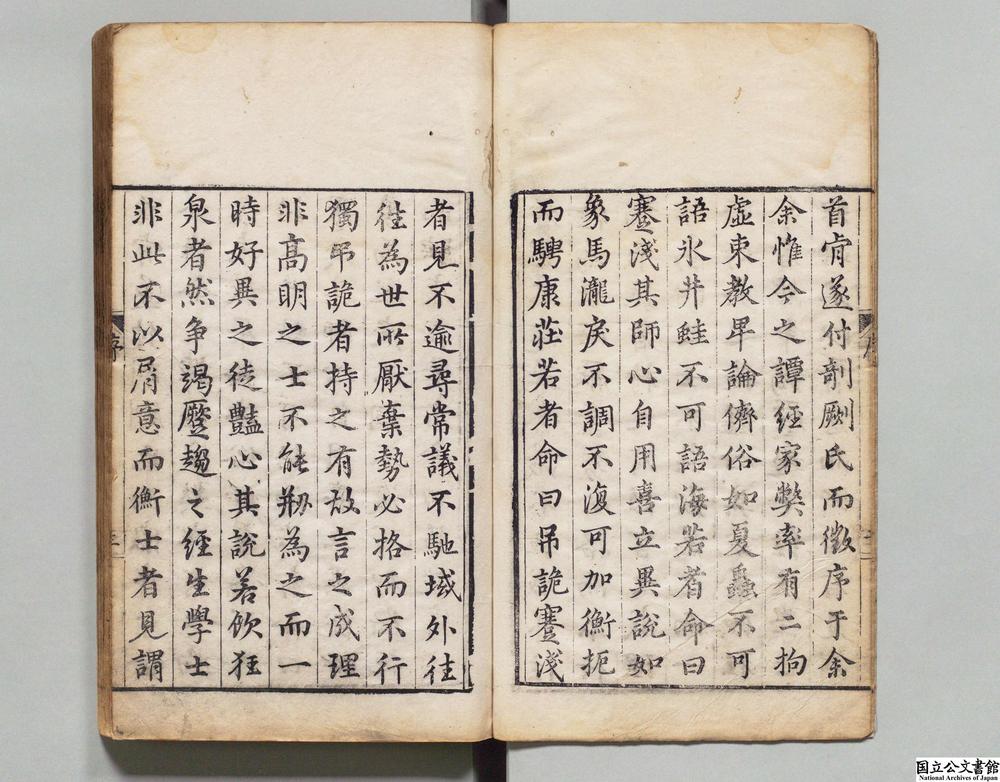 首肯遂付剞劂氏而徵序于余
余惟今之譚經家弊率有二拘
虛束教卑論儕俗如夏蟲不可
語氷井鼃不可語海若者命曰
蹇淺其師心自用喜立異說如
象馬瀧戾不調不復可加衡扼
而騁康莊若者命曰吊詭蹇淺
者見不逾尋常議不馳域外往
往為世所厭棄勢必挌而不行
獨吊詭者持之有故言之成理
非高明之士不能剏為之而一
時好異之徒豔心其說若飲狂
泉者然爭竭蹷趨之經生學士
非此不以屑意而衡士者見謂
序
序
国立公文書館
National Archives of Japan